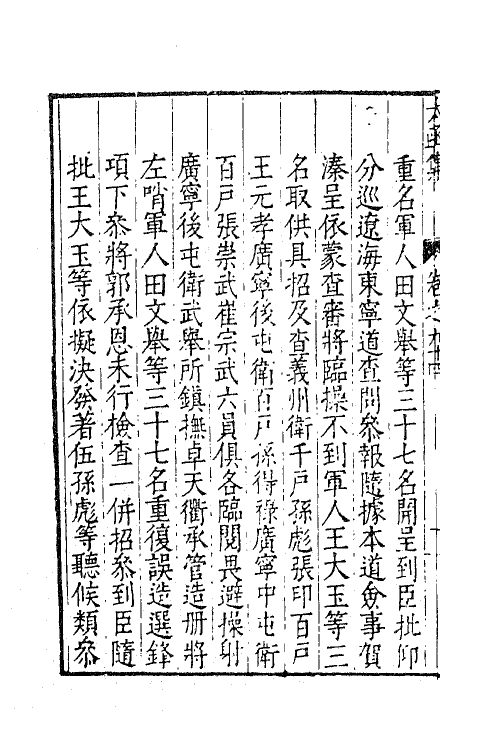 重名軍人田文舉等三十七名開呈到臣批仰
分巡遼海東寧道查問叅報隨據本道僉事賀
溱呈依蒙查審將臨操不到軍人王大玉等三
名取供具招及查義州衛千戶孫彪張印百戶
王元孝廣寧後屯衛百戶孫得祿廣寧中屯衛
百戶張崇武崔宗武六員俱各臨閱畏避操射
廣寧後屯衛武舉所鎮撫卓天衢承管造册將
左哨軍人田文舉等三十七名重復誤造選鋒
項下叅將郭承恩未行檢查一併招叅到臣隨
批王大玉等依擬決發着伍孫彪等聽候類叅